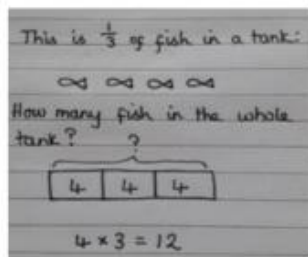 This is 1/3 of fish in a tank:
How many fish in the whole
tank?
?
4 4 4
4 × 3 = 12